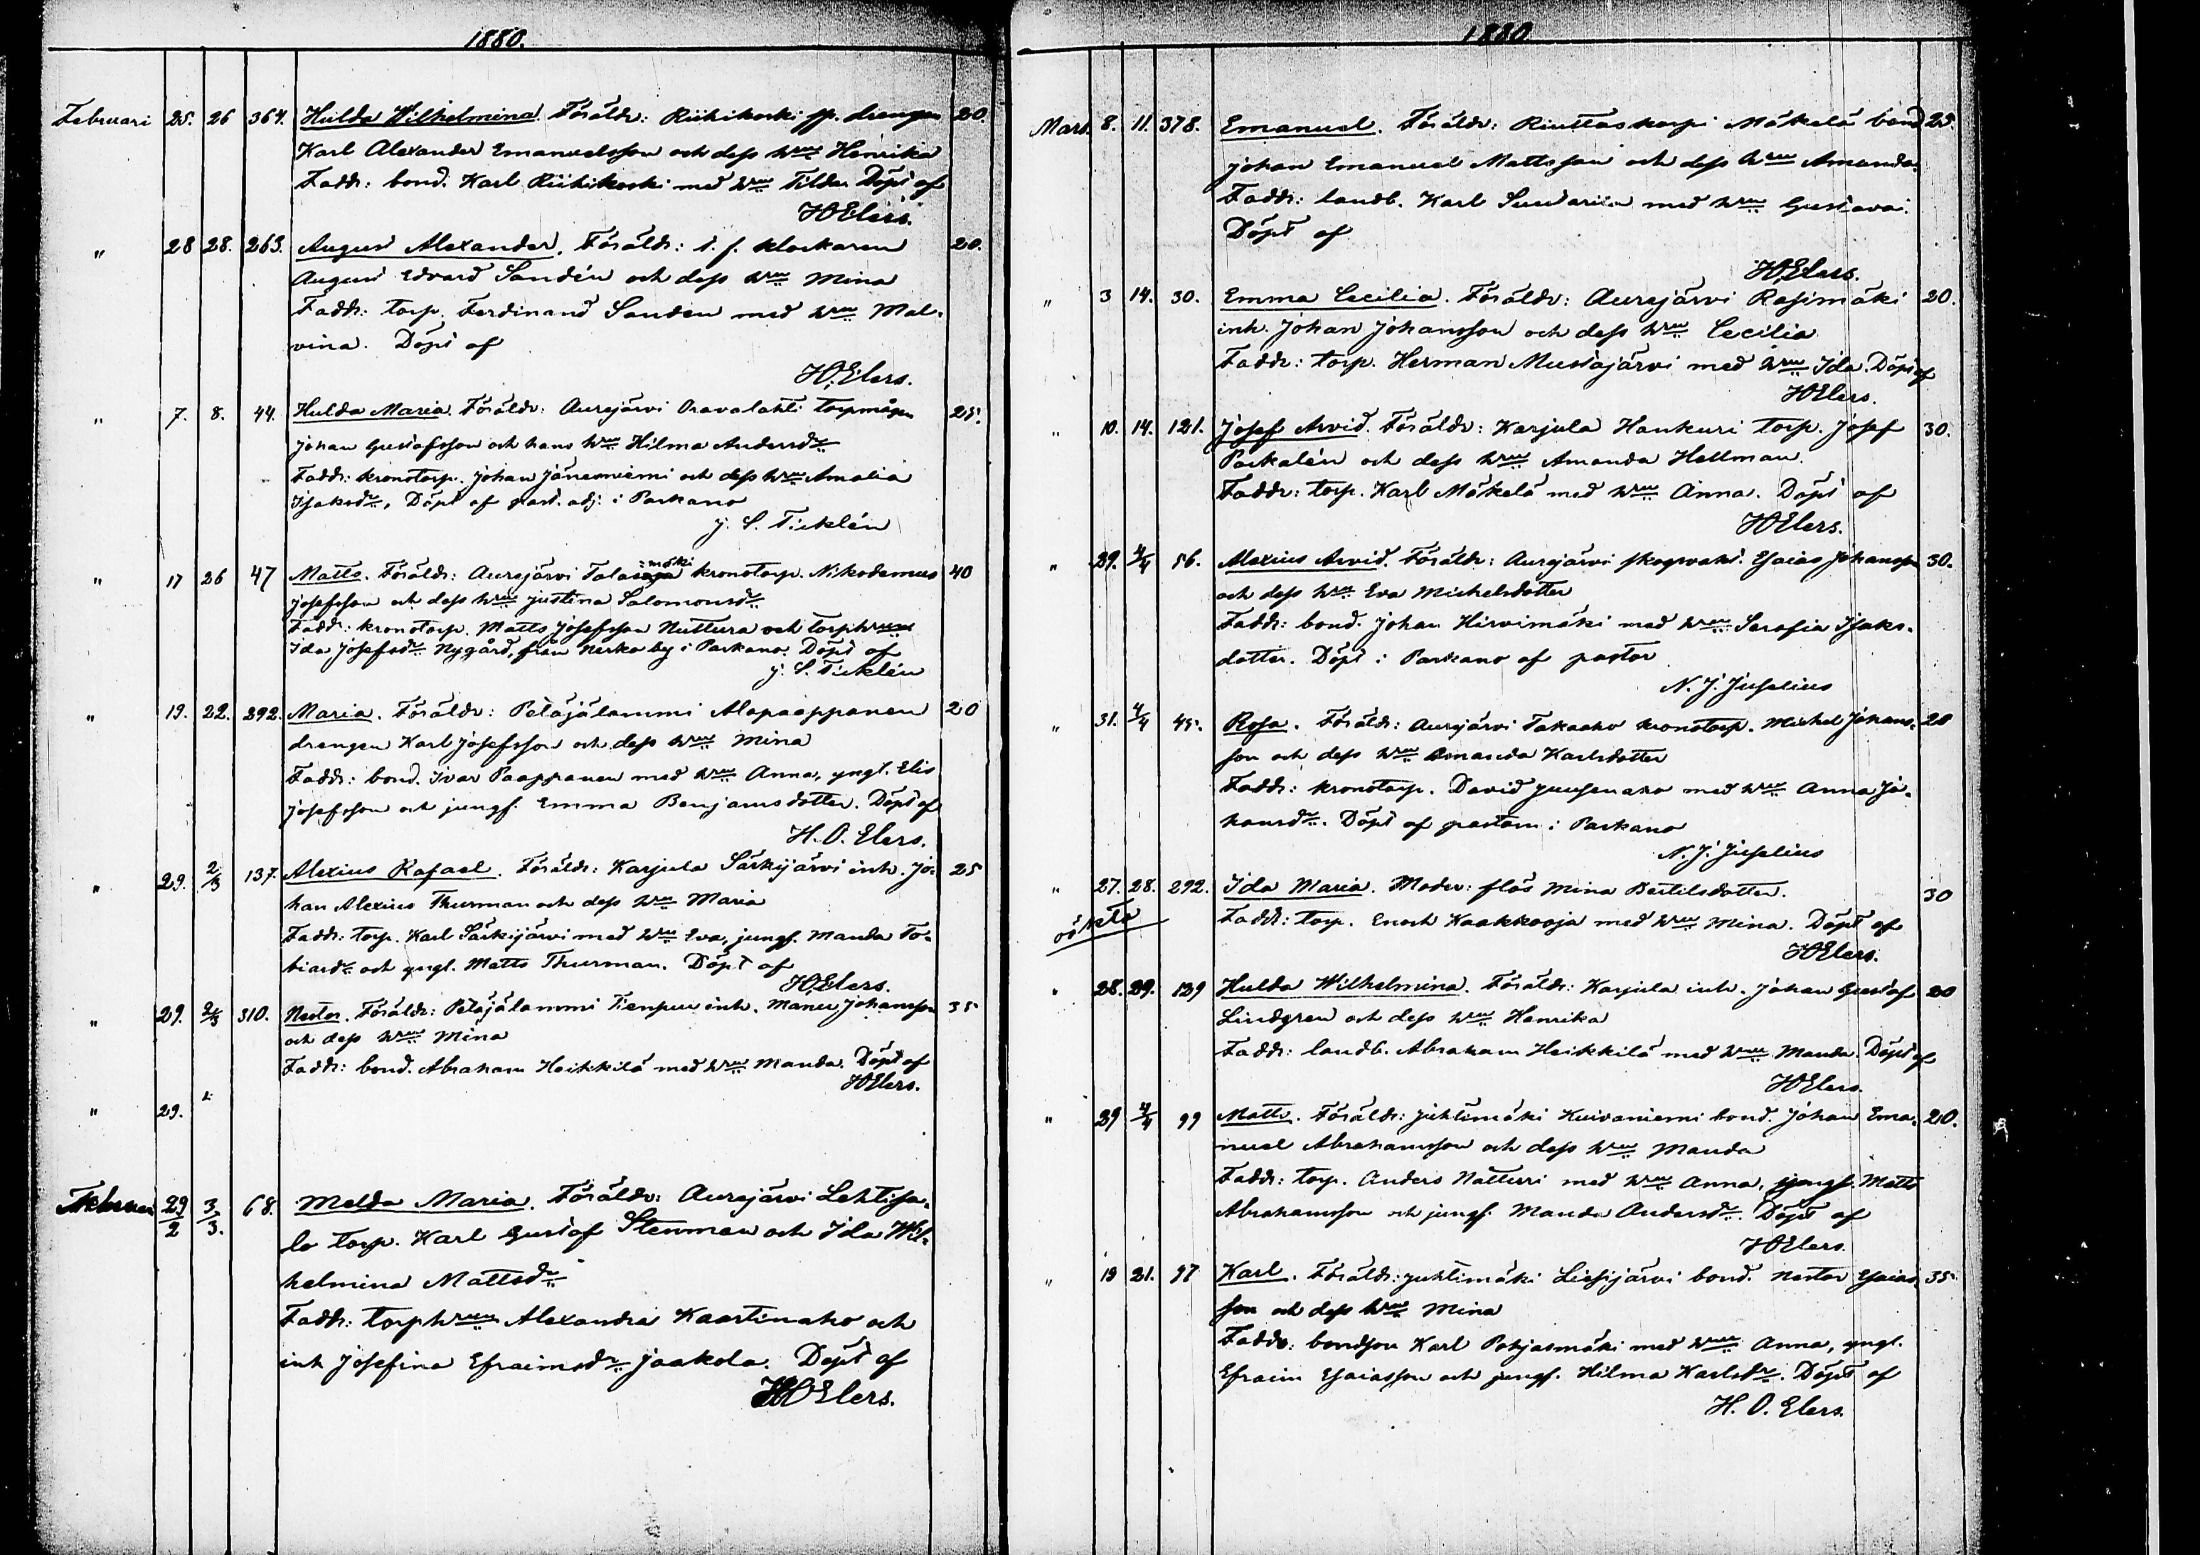 1880.
Februari 25. 26 364. Hulda Wilhelmina. Föräldr: Riihikoski drengen 20.
Karl Alexander Emanuelsson och dess hru Henrika
Faddr: bond. Karl Riihikoski med hru Tilda. Döpt af
HOElers.
" 28 28. 263. August Alexander. Föräldr: t. f. klockaren 20.
August Edvard Sandén och dess hru Mina
Faddr: torp. Ferdinand Sanden med hru Mal-
vina. Döpt af
HOElers.
" 7. 8. 44. Hulda Maria. Föräldr: Aurejärvi Oravalahti torpmågen 25.
Johan Gustafsson och hans hru Hilma Andersdr
Faddr: kronotorp. Johan Jäneniemi och dess hru Amalia
Isaksdr. Döpt af past. adj. i Parkano
J. S. Ticklén
" 17 26 47 Matts. Föräldr: Aurejärvi kronotorp. Nikodemus 40
Josefsson och dess hru Justina Salomonsdr
Faddr: kronotorp. Matts Josefsson Nuttura och torphrun
Ida Josefsdr Nygård, från Nerko by i Parkano. Döpt af
J. S. Ticklén
" 19. 22. 292. Maria. Föräldr: Peläjälammi Alapaappanen 20
drengen Karl Josefsson och dess hru Mina
Faddr: bond. Ivar Paappanen med hru Anna, yngl. Elis
Josefsson och jungf. Emma Benjamsdotter. Döpt af
H. O. Elers.
" 29. 2/3 137. Alexius Rafael. Föräldr: Karjula Särkijärvi inh. Jo- 25
han Alexius Thurman och dess hru Maria
Faddr: torp. Karl Särkijärvi med hru Eva, jungf. Manda To-
biasdr och yngl. Matts Thurman. Döpt af
HOElers.
" 29. 2/3 310. Nestor. Föräldr: Peläjälammi Tienpuu inh. Manu Johansson 35
och dess hru Mina
Faddr: bond. Abraham Heikkilä med hru Manda. Döpt af
HOElers.
" 29.
Februari 29/2 3/3. 68. Melda Maria. Föräldr: Aurejärvi Lehtisa-
lo torp. Karl Gustaf Stenman och Ida Wil-
helmina Mattsdr
Faddr: torphrun Alexandra Kaartinaho och
inh Josefina Efraimsdr Jaakola. Döpt af
HOElers.
1880.
Mars. 8. 11. 378. Emanuel. Föräldr: Riuttaskorpi Mäkelä bond 25.
Johan Emanuel Mattsson och dess hru Amanda.
Faddr: landb. Karl med hru Gustava.
Döpt af
HOElers.
" 3 14. 30. Emma Cecilia. Föräldr: Aurejärvi Rasimäki 20.
inh. Johan Johansson och dess hru Cecilia
Faddr: torp. Herman Mustajärvi med hru Ida. Döpt af
HOElers.
" 10. 14. 121. Josef Arvid. Föräldr: Karjula Hankuri torp. Josef 30.
Parkalén och dess hru Amanda Hellman.
Faddr: torp. Karl Mäkelä med hru Anna. Döpt af
HOElers.
" 29. 4/4 56. Alexius Arvid. Föräldr: Aurejärvi skogvakt. Esaias Johansson 30.
och dess hru Eva Michelsdotter
Faddr: bond. Johan Hirvimäki med hru Serafia Isaks-
dotter. Döpt i Parkano af pastor
N. J. Juselius
" 31. 4/4 45. Rosa. Föräldr: Aurejärvi Takaaho kronotorp. Michel Johans- 20
son och dess hru Amanda Karlsdotter
Faddr: kronotorp. David Juusenaho med hru Anna Jo-
hansdr. Döpt af pastorn i Parkano
N. J. Juselius
" 27. 28. 292. Ida Maria. Moder: Mina Bertilsdotter. 30
oäkta Faddr: torp. Enoch Kaakkooja med hru Mina. Döpt af
HOElers.
" 28. 29. 129 Hulda Wilhelmina. Föräldr: Karjula inh. Johan Gustaf 20
Lindgren och dess hru Henrika
Faddr: landb. Abraham Heikkilä med hru Manda. Döpt af
HOElers.
" 29 4/4 99 Matts. Föräldr: Juhtimäki Kuivaniemi bond. Johan Ema- 20.
nuel Abrahamsson och dess hru Manda
Faddr: torp. Anders Nätturi med hru Anna, yngl. Matts
Abrahamsson och jungf. Manda Andersdr. Döpt af
HOElers.
" 19 21. 97 Karl. Föräldr: Juhtimäki Liesijärvi bond. Nestor Esaias- 35
son och dess hru Mina
Faddr: bondson Karl Pohjasmäki med hru Anna, yngl.
Efraim Esaiasson och jungf. Hilma Karlsdr. Döpt af
H. O. Elers.